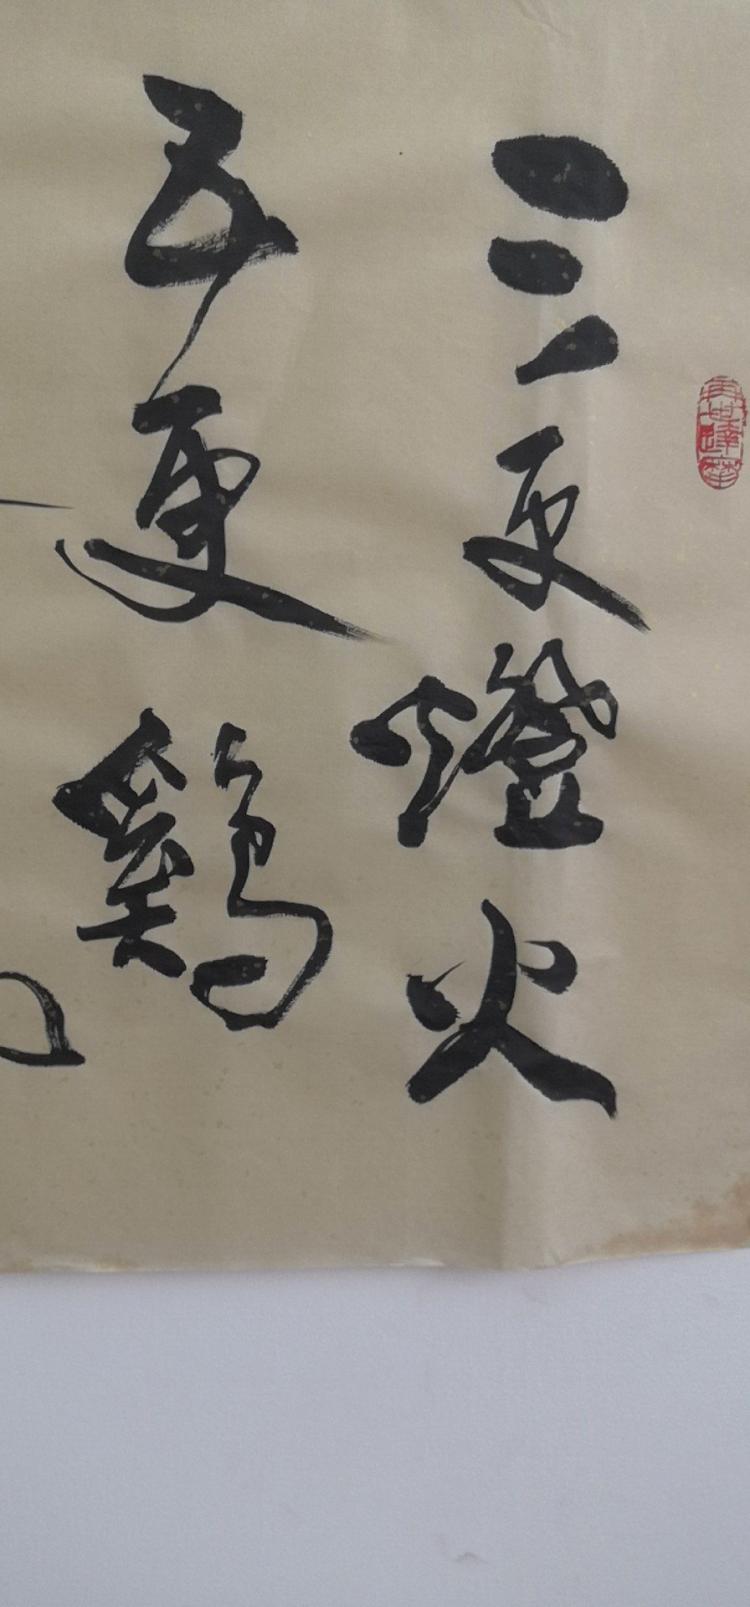 三更燈火
五更鷄